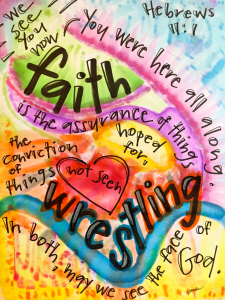 We see you now
Hebrews 11:1
You were here all along.
faith
is the assurance of things
hoped for,
the conviction of things
not seen
wrestling
In both, may we see the face of God.